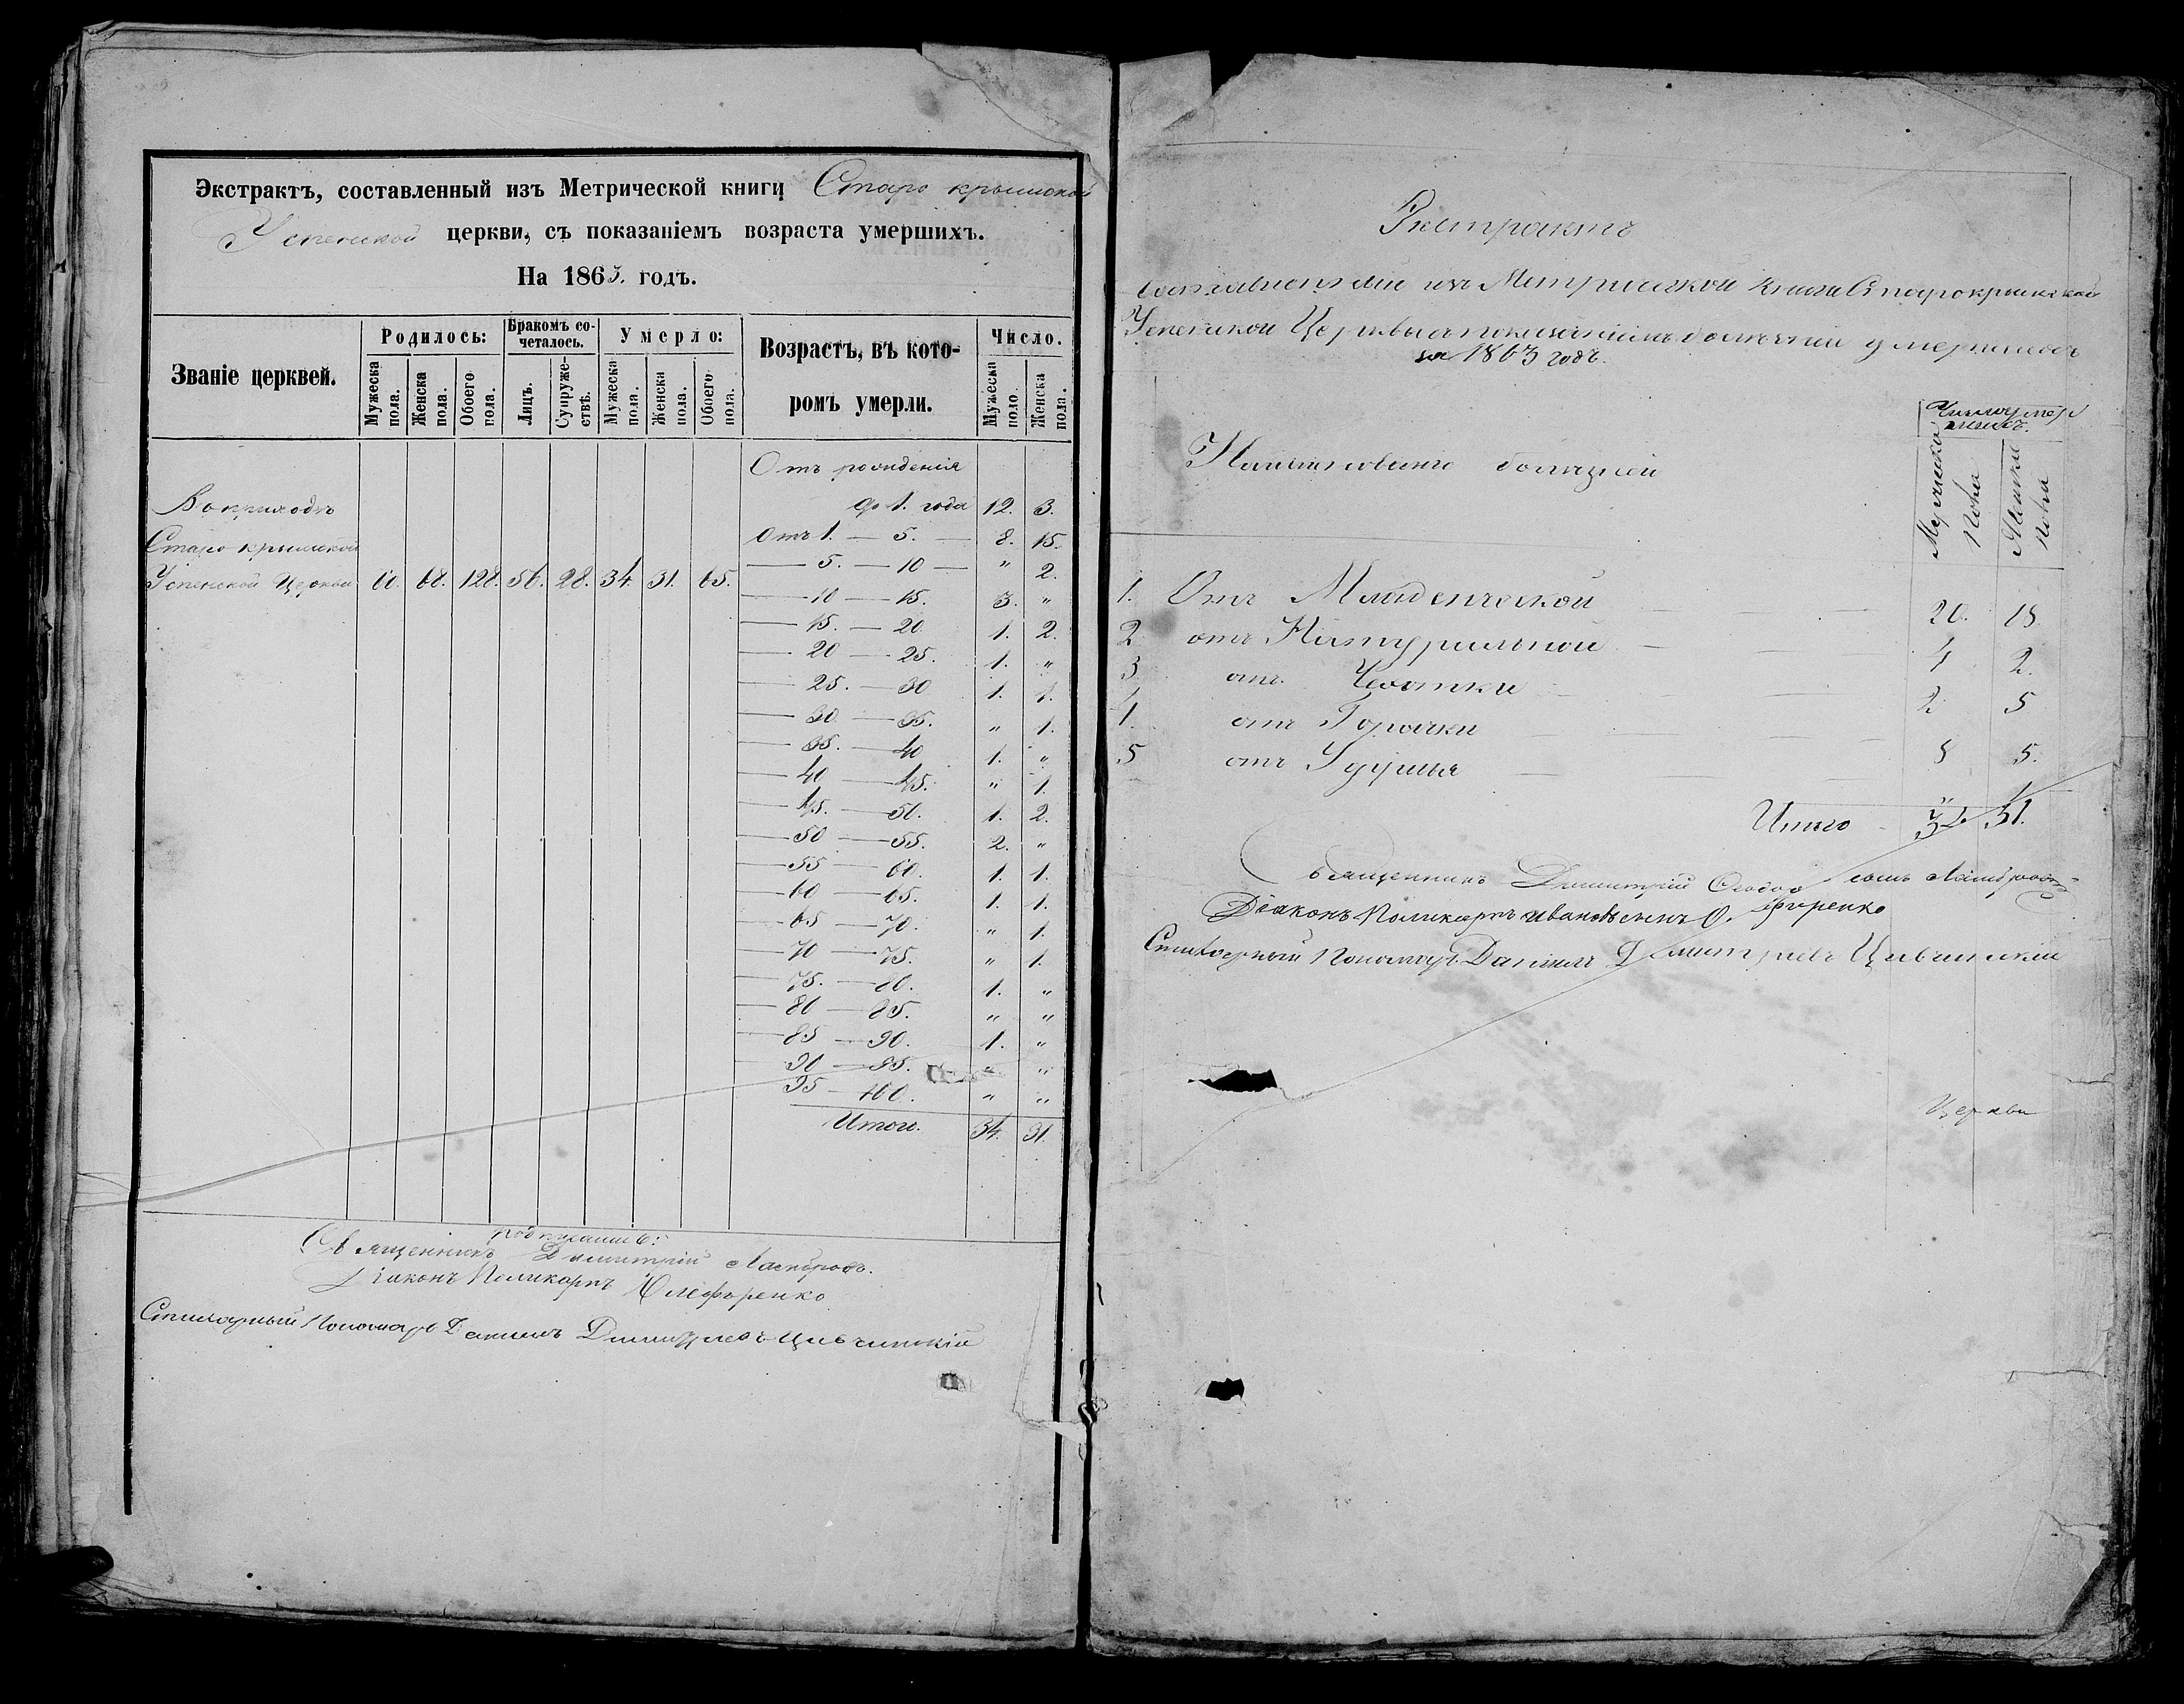 Экстрактъ, составленный изъ Метрической книги Старо крымской
Успенской церкви, съ показаніемъ возраста умершихъ.
На 1863. годъ.
Званіе церквей.
Родилось:
Бракомъ со-
четалось.
Умерло:
Возрастъ, въ кото-
ромъ умерли.
Число.
Мужеска пола.
Женска пола.
Обоего пола.
Лицъ.
Супруже-
ствъ.
Мужеска пола.
Женска пола.
Обоего пола.
Мужеска поло.
Женска пола.
Отъ рожденія
до 1. года 12. 3.
Отъ 1. — 5. — 8. 15.
— 5. — 10 — " 2.
— 10 — 15. 3. "
— 15. — 20 1. 2.
— 20 — 25. 1. "
— 25. — 30 1. 1.
— 30 — 35. " 1.
— 35. — 40 1. "
— 40 — 45. " 1.
— 45. — 50. 1. 2.
— 50 — 55. 2. "
— 55 — 60. 1. 1.
— 60 — 65. 1. 1.
— 65 — 70. " 1.
— 70 — 75. " 1.
— 75. — 80. 1. "
— 80 — 85. " "
— 85 — 90. 1. "
— 90 — 95. " "
— 95 — 100. " "
Итого. 34. 31.
Во приходѣ
Старо крымской
Успенской Церкви 60. 68. 128. 56. 28. 34. 31. 65.
подписали:
Священникъ Димитрій
Діаконъ Поликарпъ
Стихарный Пономарь Даніилъ Димитріевъ
Экстрактъ
составленный изъ Метрической книги Старокрымской
Успенской Церквы съ показаніемъ болѣзней умершихъ
за 1863 годъ.
Наименованіе болезней
Число умер
шихъ.
Мужеска Пола
Женска Пола
1. Отъ Младенческой — — 20. 18
2 отъ Натуральной — — 4 2.
3 отъ Чахотки — — 2 5
4. отъ Горячки — —
5 отъ Удушья — — 8 5.
Итого 34. 31.
Священникъ Димитрій сынъ
Діаконъ Поликарпъ Ивановъ сынъ
Стихарный Пономарь Даніилъ Димитріевъ
Церкви